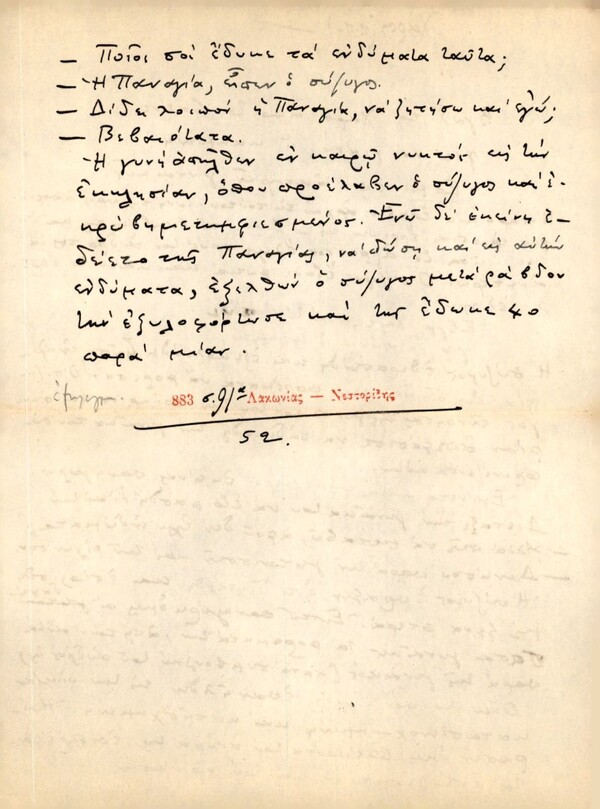 — Ποῖοι σοί ἔδωκε τά ἐνδύματα ταῦτα;
— Ἡ Παναγία, εἶπεν ὁ σύζυγος.
— Δίδει λοιπόν ἡ Παναγία, νά ζητήσω καί ἐγώ;
— Βεβαιότατα.
Ἡ γυνή ἀπῆλθεν ἐν καιρῷ νυκτός εἰς τήν
ἐκκλησίαν, ὅπου προέλαβεν ὁ σύζυγος καί ἐ-
κρύβη μετημφιεσμένος. Ἐνῷ δέ ἐκείνη ἐ-
δέετο τῆς Παναγίας, νά δώσῃ καί εἰς αὐτήν
ἐνδύματα, ἐξελθών ὁ σύζυγος μετά ράβδου
τήν ἐξυλοφόρτωσε καί τῆς ἔδωκε 40
παρά μίαν.
883 σ. 91α Λακωνίας — Νεστορίδης
52.